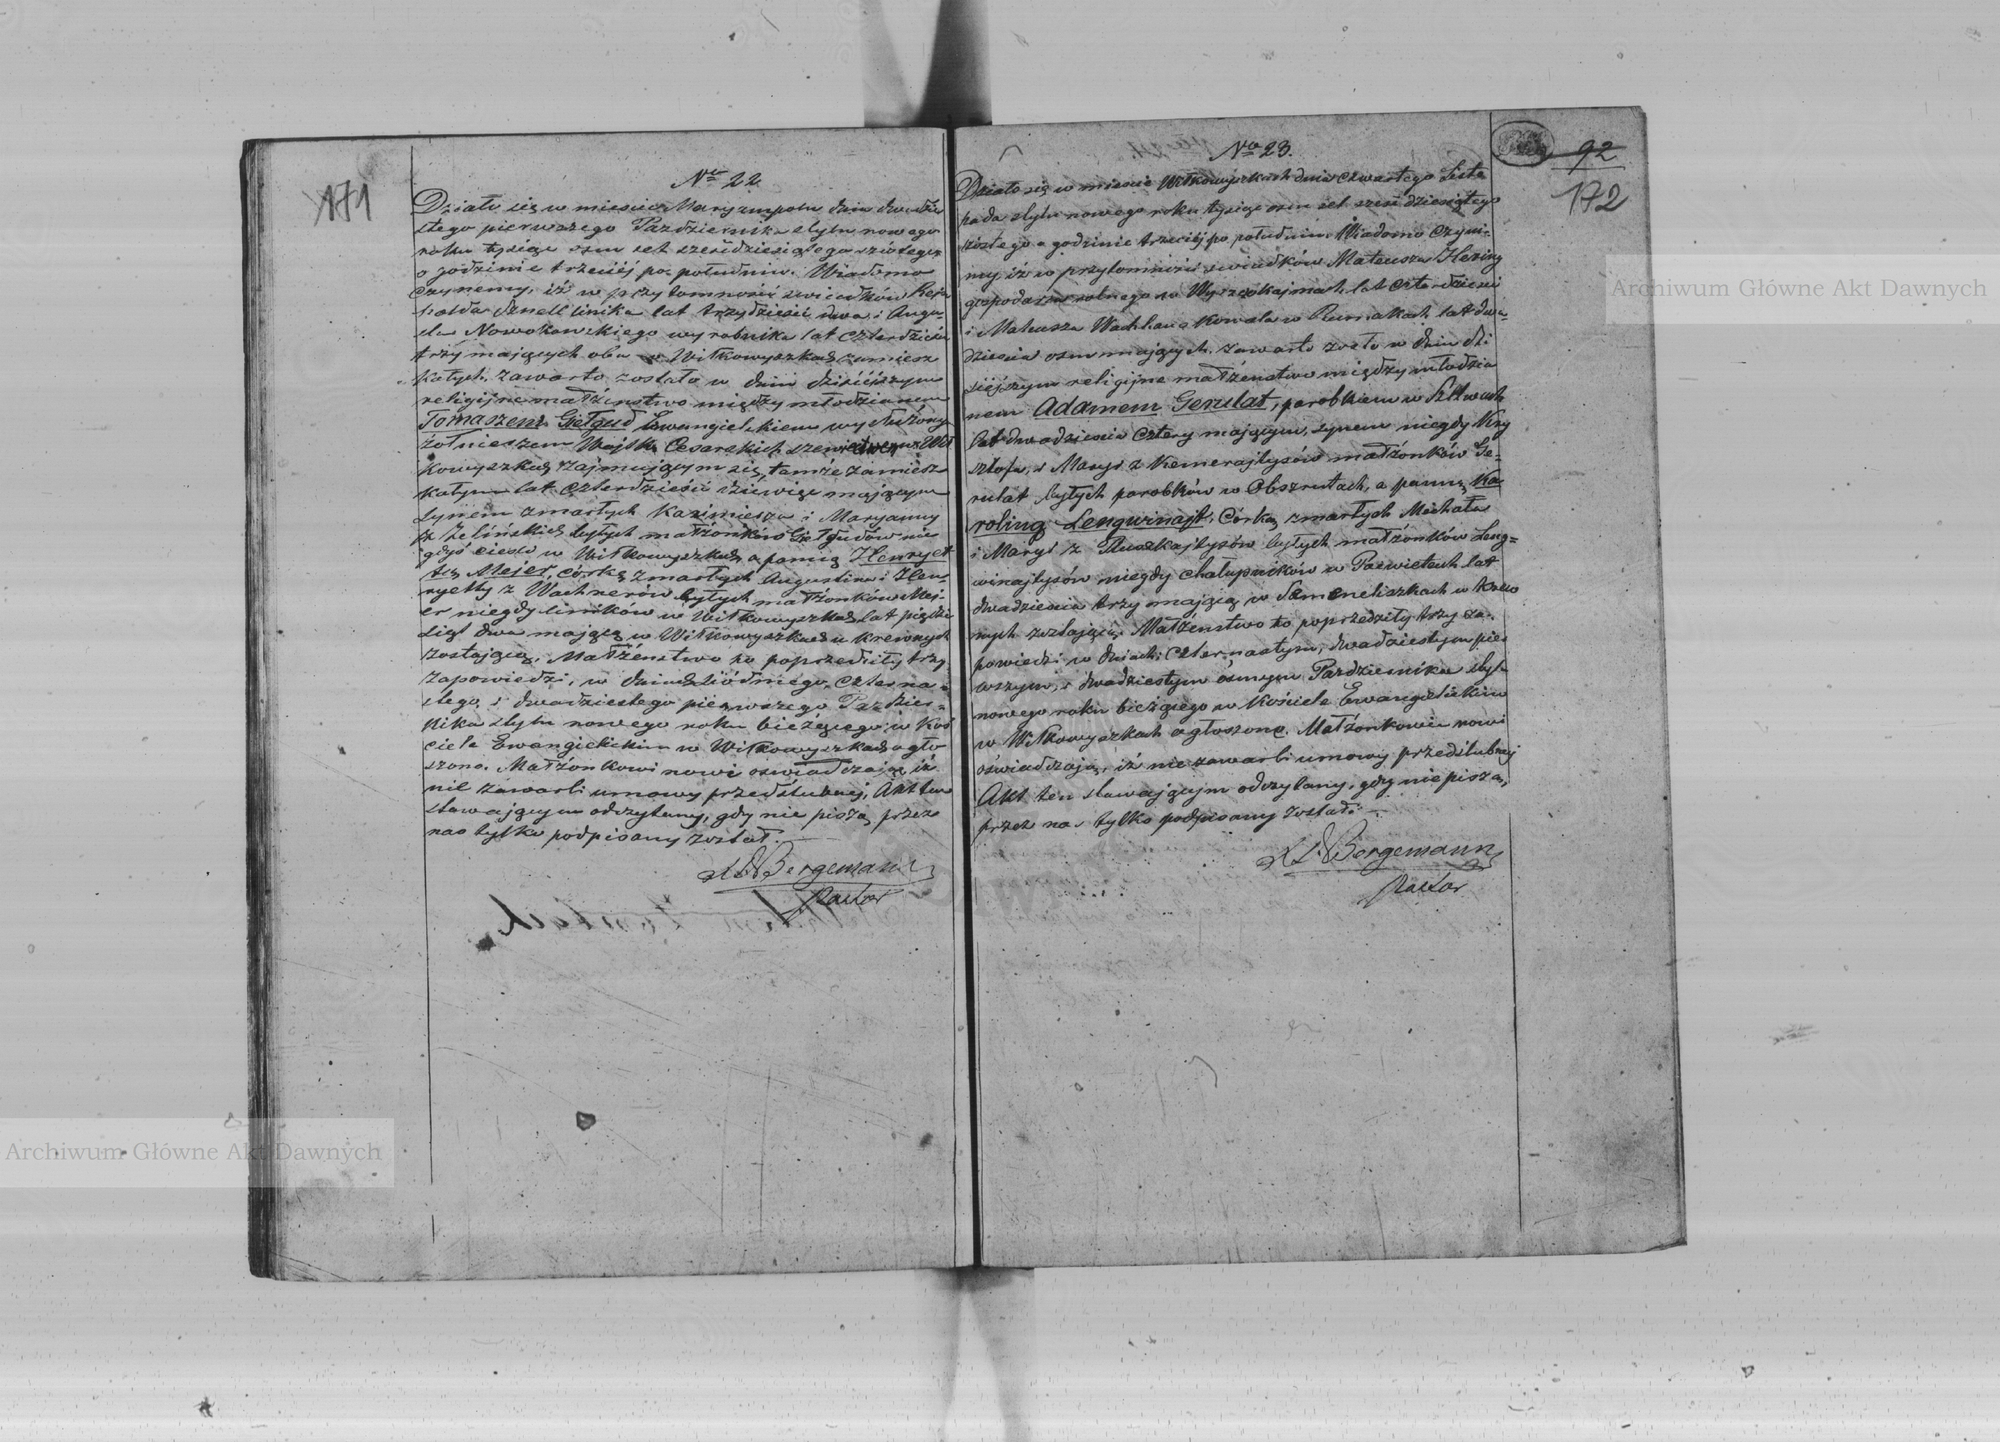 171
№ 22
Działo się w mieście Maryampolu dnia dwudzie
stego pierwszego Października stylu nowego
roku tysiąc ośm set sześćdziesiątego szóstego
o godzinie trzeciéj po południu. Wiadomo
czynemy, iż w przytomności świadków
lat trzydzieści dwa i Augu-
sta Nowakowskiego wyrobnika lat czterdzieści
trzy mających obu w Wiłkowyszkach zamiesz
kałych, zawarte zostało w dniu dzisiéjszym
religijne małżeństwo między młodzianem
Tomaszem Giełgud Ewangielickiem wysłużonym
żołnierzem Wojsk Cesarskich szewctwem w Wił
kowyszkach zajmującym się, tamże zamiesz
kałym lat czterdzieści dziewięć mającym
synem zmarłych Kazimierza i Maryanny
z Zelińskich byłych małżonków Giełgudów nie
gdyś cieśli w Wiłkowyszkach, a panną Henryet
tą Mejer, córką zmarłych Augustina i Hen-
ryetty z Wachnerów byłych małżonków Mej-
er niegdy w Wiłkowyszkach lat pięćdzie
siąt dwa mającą w Wiłkowyszkach u krewnych
zostającą. Małżeństwo to poprzedziły trzy
zapowiedzi, w dniach siódmego, czterna-
stego i dwudziestego pierwszego Paździer-
nika stylu nowego roku bieżącego w Koś
ciele Ewangielickim w Wiłkowyszkach ogło
szone. Małżonkowi nowi oświadczają iż
nie zawarli umowy przedślubnéj, Akt ten
stawającym odczytany, gdy nie piszą, przez
nas tylko podpisany został.
Bergemann
Pastor
№ 23.
92
172
Działo się w mieście Wiłkowyszkach dnia czwartego Listo
pada stylu nowego roku tysiąc ośm set sześćdziesiątego
szóstego o godzinie trzeciéj po południu. Wiadomo czyni-
my, iż w przytomności świadków Mateusza
gospodarza rolnego w lat czterdzieści
i Mateusza kowala w Rumokach lat dwa-
dzieścia ośm mających, zawarte zostało w dniu dzi
siéjszym religijne małżeństwo między młodzia
nem Adamem Gerulat, parobkiem w
lat dwadzieścia cztery mającym, synem niegdy Kry
sztofa, i Maryi z małżonków Ge-
rulat byłych parobków w Obszrutach, a panną Ka
roliną Lengwinajt, córką zmarłych Michała
i Maryi z byłych małżonków Leng-
winajtysów niegdy chałupników w lat
dwadzieścia trzy mającą w Semeneliszkach u krew
nych zostającą. Małżeństwo to poprzedziły trzy za-
powiedzi w dniach czternastym, dwudziestym pier
wszym, i dwudziestym ósmym Października styl.
nowego roku bieżącego w Kościele Ewangelickim
w Wiłkowyszkach ogłoszone. Małżonkowie nowi
oświadczają, iż nie zawarli umowy przedślubnej
Akt ten stawającym odczytany, gdy nie piszą,
przez nas tylko podpisany został.
Bergemann
Pastor
Archiwum Główne Akt Dawnych
Archiwum Główne Akt Dawnych